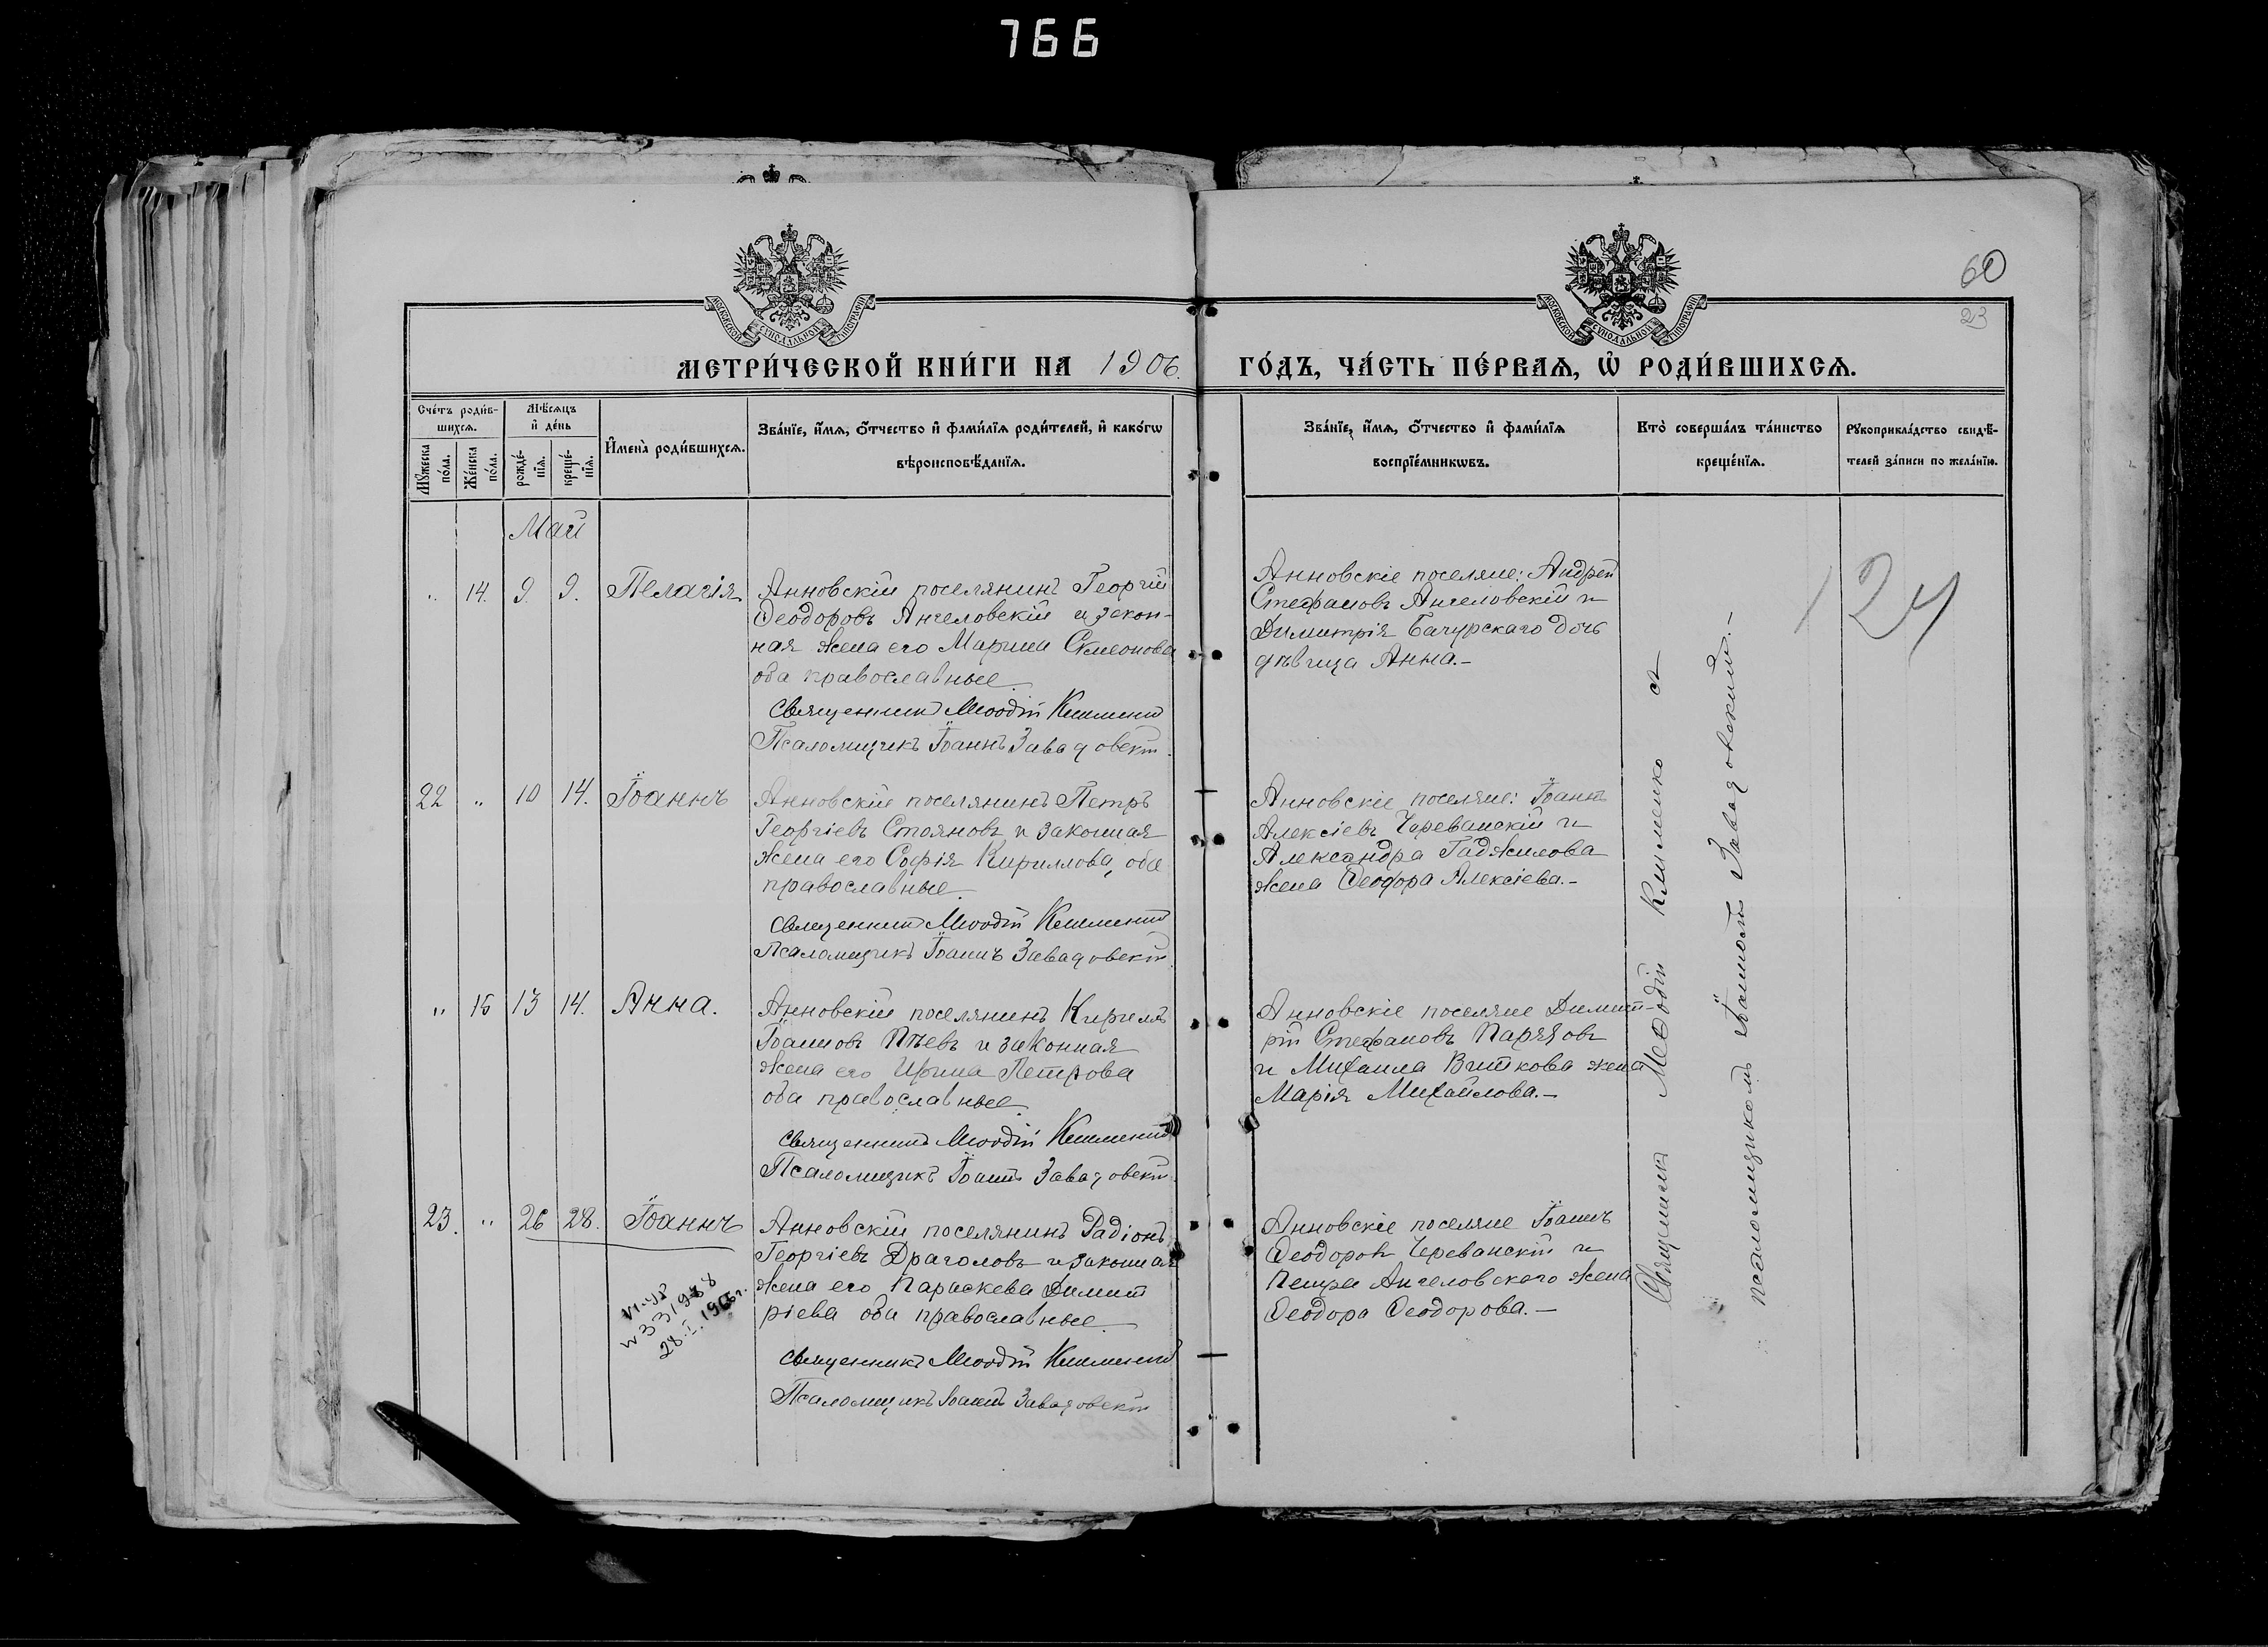 766
60
23
МОСКОВСКОЙ СѴНОДАЛЬНОЙ ТИПОГРАФІИ
МОСКОВСКОЙ СѴНОДАЛЬНОЙ ТИПОГРАФІИ
МЕТРИ́ЧЕСКОЙ КНИ́ГИ НА 1906.
ГО́ДЪ, ЧА́СТЬ ПЕ́РВАѦ, Ѡ҆ РОДИ́ВШИХСѦ.
Сче́тъ роди́в-
шихсѧ.
Мꙋ́жеска по́ла.
Же́нска по́ла.
Мѣ́сѧцъ
и҆ де́нь
рожде́-
нїѧ.
креще́-
нїѧ.
И҆мена̀ роди́вшихсѧ.
Зва́нїе, и҆́мѧ, ѻ҆́тчество и҆ фами́лїѧ роди́телей, и҆ како́гѡ
вѣроисповѣ́данїѧ.
Зва́нїе, и҆́мѧ, ѻ҆́тчество и҆ фами́лїѧ
воспрїе́мникѡвъ.
Кто̀ соверша́лъ та́инство
креще́нїѧ.
Рꙋкоприкла́дство свидѣ́-
телей за́писи по жела́нїю.
Май
„ 14. 9. 9. Пелагія
Анновскій поселянинъ Георгій
Ѳеодоровъ Ангеловскій и закон-
ная жена его Марина Симеонова
оба православные
Священникъ Меѳодій Клименко
Псаломщикъ Іоаннъ Завадовскій
Анновскіе поселяне: Андрей
Стефановъ Ангеловскій и
Димитрія Бачурскаго дочь
дѣвица Анна.-
124
22 „ 10 14. Іоаннъ
Анновскій поселянинъ Петръ
Георгіевъ Стояновъ и законная
жена его Софія Кириллова, оба
православные
Священникъ Меѳодій Клименко
Псаломщикъ Іоаннъ Завадовскій
Анновскіе поселяне: Іоаннъ
Алексіевъ Череванскій и
Александра Гаджилова
жена Ѳеодора Алексіева.-
„ 15 13 14. Анна.
Анновскій поселянинъ Кириллъ
Іоанновъ Пѣевъ и законная
жена его Ирина Петрова
оба православные
Священникъ Меѳодій Клименко
Псаломщикъ Іоаннъ Завадовскій
Анновскіе поселяне Димит-
рій Стефановъ
и Михаила Виткова жена
Марія Михайлова.-
23. „ 26 28. Іоаннъ
28.I.1966г.
Анновскій поселянинъ Радіонъ
Георгіевъ Драголовъ и законная
жена его Параскева Димит
ріева оба православные
Священникъ Меѳодій Клименко
Псаломщикъ Іоаннъ Завадовскій
Анновскіе поселяне Іоаннъ
Ѳеодоровъ Череванскій и
Петра Ангеловскаго жена
Ѳеодора Ѳеодорова.-
Священникъ Меѳодій Клименко съ
псаломщикомъ Іоанномъ Завадовскимъ.-